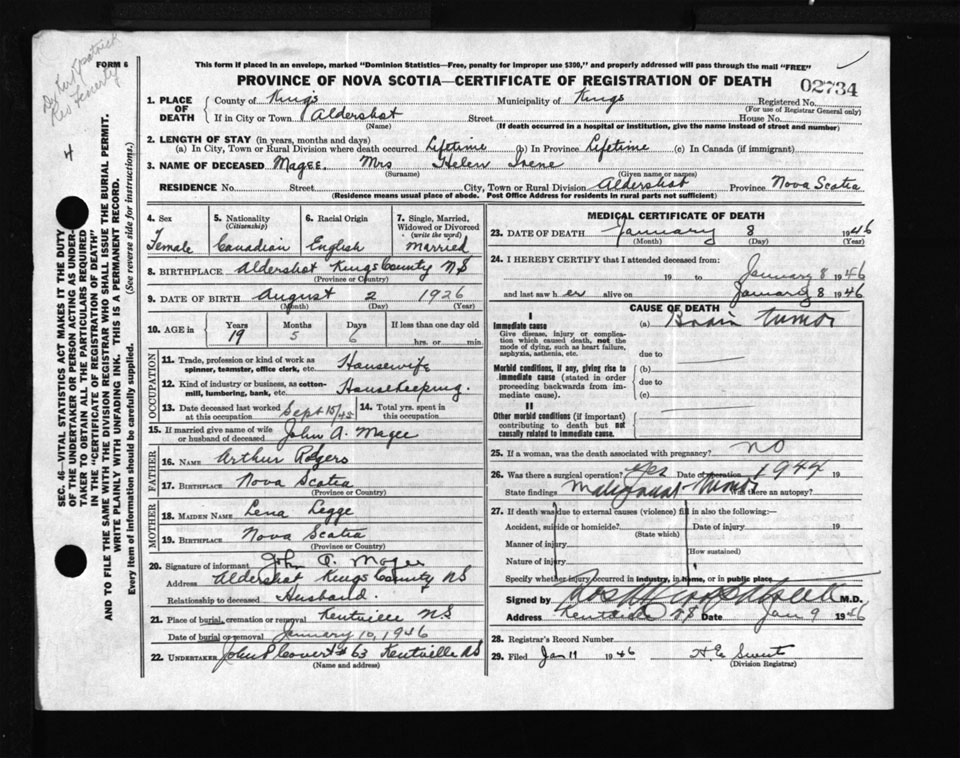 Dr Kirkpatrick
Rev Fenerty
4
FORM 6
This form if placed in an envelope, marked "Dominion Statistics—Free, penalty for improper use $300," and properly addressed will pass through the mail "FREE"
PROVINCE OF NOVA SCOTIA—CERTIFICATE OF REGISTRATION OF DEATH
02734
SEC. 46—VITAL STATISTICS ACT MAKES IT THE DUTY
OF THE UNDERTAKER OR PERSON ACTING AS UNDER-
TAKER TO OBTAIN ALL THE PARTICULARS REQUIRED
IN THE "CERTIFICATE OF REGISTRATION OF DEATH"
AND TO FILE THE SAME WITH THE DIVISION REGISTRAR WHO SHALL ISSUE THE BURIAL PERMIT.
WRITE PLAINLY WITH UNFADING INK. THIS IS A PERMANENT RECORD.
Every item of information should be carefully supplied. (See reverse side for instructions.)
1. PLACE OF DEATH County of Kings Municipality of Kings Registered No.
(For use of Registrar General only)
If in City or Town Aldershot Street House No.
(Name) (If death occurred in a hospital or institution, give the name instead of street and number)
2. LENGTH OF STAY (in years, months and days)
(a) In City, Town or Rural Division where death occurred Lifetime (b) In Province Lifetime (c) In Canada (if immigrant)
3. NAME OF DECEASED Magee, Mrs Helen Irene
(Surname) (Given name or names)
RESIDENCE No. Street City, Town or Rural Division Aldershot Province Nova Scotia
(Residence means usual place of abode. Post Office Address for residents in rural parts not sufficient)
4. Sex Female
5. Nationality (Citizenship) Canadian
6. Racial Origin English
7. Single, Married, Widowed or Divorced (write the word) Married
8. BIRTHPLACE Aldershot Kings County NS
(Province or Country)
9. DATE OF BIRTH August 2 1926
(Month) (Day) (Year)
10. AGE in Years 19 Months 5 Days 6 If less than one day old hrs. or min.
OCCUPATION
11. Trade, profession or kind of work as spinner, teamster, office clerk, etc. Housewife
12. Kind of industry or business, as cotton-mill, lumbering, bank, etc. Housekeeping.
13. Date deceased last worked at this occupation Sept 15/45
14. Total yrs. spent in this occupation
15. If married give name of wife or husband of deceased John A. Magee
FATHER
16. NAME Arthur Rogers
17. BIRTHPLACE Nova Scotia
(Province or Country)
MOTHER
18. MAIDEN NAME Lena Legge
19. BIRTHPLACE Nova Scotia
(Province or Country)
20. Signature of informant John A. Magee
Address Aldershot Kings County NS
Relationship to deceased Husband.
21. Place of burial, cremation or removal Kentville NS
Date of burial or removal January 10, 1946
22. UNDERTAKER John P Covert 63 Kentville NS
(Name and address)
MEDICAL CERTIFICATE OF DEATH
23. DATE OF DEATH January 8 1946
(Month) (Day) (Year)
24. I HEREBY CERTIFY that I attended deceased from:
19 to January 8 1946
and last saw h er alive on January 8 1946
CAUSE OF DEATH
I
Immediate cause (a) Brain tumor
Give disease, injury or complica-
tion which caused death, not the
mode of dying, such as heart failure,
asphyxia, asthenia, etc.
due to
Morbid conditions, if any, giving rise to
immediate cause (stated in order
proceeding backwards from im-
mediate cause).
(b)
due to
(c)
II
Other morbid conditions (if important)
contributing to death but not
causally related to immediate cause.
25. If a woman, was the death associated with pregnancy? no
26. Was there a surgical operation? Yes Date of operation 1944
State findings Malignant tumor Was there an autopsy?
27. If death was due to external causes (violence) fill in also the following:—
Accident, suicide or homicide? Date of injury 19
(State which)
Manner of injury
(How sustained)
Nature of injury
Specify whether injury occurred in industry, in home, or in public place
Signed by M.D.
Address Kentville NS Date Jan 9 1946
28. Registrar's Record Number
29. Filed Jan 11 1946
(Division Registrar)